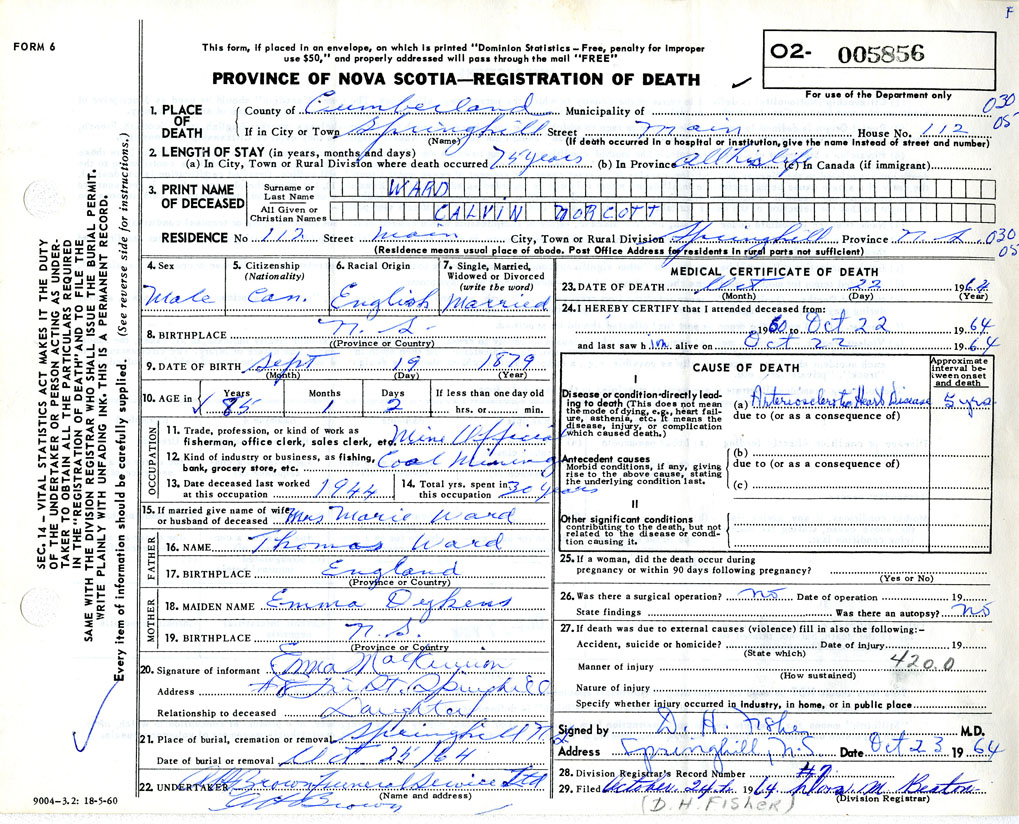 F
FORM 6
This form, if placed in an envelope, on which is printed "Dominion Statistics – Free, penalty for improper
use $50," and properly addressed will pass through the mail "FREE"
PROVINCE OF NOVA SCOTIA—REGISTRATION OF DEATH
O2- 005856
For use of the Department only
030
05
1. PLACE OF DEATH
County of Cumberland Municipality of
If in City or Town Springhill Street Main House No. 112
(Name) (If death occurred in a hospital or institution, give the name instead of street and number)
2. LENGTH OF STAY (in years, months and days)
(a) In City, Town or Rural Division where death occurred 75 years (b) In Province all his life (c) In Canada (if immigrant)
3. PRINT NAME OF DECEASED
Surname or Last Name WARD
All Given or Christian Names CALVIN NORCOTT
RESIDENCE No 112 Street Main City, Town or Rural Division Springhill Province N S
030
05
(Residence means usual place of abode. Post Office Address for residents in rural parts not sufficient)
4. Sex
Male
5. Citizenship
(Nationality)
Can.
6. Racial Origin
English
7. Single, Married,
Widowed or Divorced
(write the word)
Married
8. BIRTHPLACE N. S.
(Province or Country)
9. DATE OF BIRTH Sept 19 1879
(Month) (Day) (Year)
10. AGE in Years Months Days If less than one day old
85 1 2 hrs. or min.
OCCUPATION
11. Trade, profession, or kind of work as
fisherman, office clerk, sales clerk, etc. Mine Official
12. Kind of industry or business, as fishing,
bank, grocery store, etc. Coal Mining
13. Date deceased last worked
at this occupation 1944
14. Total yrs. spent in
this occupation 30 years
15. If married give name of wife
or husband of deceased Mrs Marie Ward
FATHER
16. NAME Thomas Ward
17. BIRTHPLACE England
(Province or Country)
MOTHER
18. MAIDEN NAME Emma Dykens
19. BIRTHPLACE N. S.
(Province or Country)
20. Signature of informant Emma MacKinnon
Address #8 Fir St. Springhill
Relationship to deceased Daughter
21. Place of burial, cremation or removal Springhill N.S
Date of burial or removal Oct 25/64
22. UNDERTAKER Brown Funeral Service Ltd
(Name and address)
Brown
9004-3.2: 18-5-60
MEDICAL CERTIFICATE OF DEATH
23. DATE OF DEATH Oct 22 1964
(Month) (Day) (Year)
24. I HEREBY CERTIFY that I attended deceased from:
1960 to Oct 22 1964
and last saw him alive on Oct 22 1964
CAUSE OF DEATH
Approximate
interval be-
tween onset
and death
I
Disease or condition directly lead-
ing to death (This does not mean
the mode of dying, e.g., heart fail-
ure, asthenia, etc. It means the
disease, injury, or complication
which caused death.)
(a) Arteriosclerotic Heart Disease 5 yrs
due to (or as a consequence of)
Antecedent causes
Morbid conditions, if any, giving
rise to the above cause, stating
the underlying condition last.
(b)
due to (or as a consequence of)
(c)
II
Other significant conditions
contributing to the death, but not
related to the disease or condi-
tion causing it.
25. If a woman, did the death occur during
pregnancy or within 90 days following pregnancy?
(Yes or No)
26. Was there a surgical operation? No Date of operation 19
State findings Was there an autopsy? No
27. If death was due to external causes (violence) fill in also the following:–
Accident, suicide or homicide? Date of injury 19
(State which)
4200
Manner of injury
(How sustained)
Nature of injury
Specify whether injury occurred in industry, in home, or in public place
Signed by D. H. Fisher M.D.
Address Springhill, N.S Date Oct 23 1964
28. Division Registrar's Record Number #9
29. Filed October 24th 1964 M Beaton
(Division Registrar)
(D. H. FISHER)
SEC. 14 – VITAL STATISTICS ACT MAKES IT THE DUTY
OF THE UNDERTAKER OR PERSON ACTING AS UNDER-
TAKER TO OBTAIN ALL THE PARTICULARS REQUIRED
IN THE "REGISTRATION OF DEATH" AND TO FILE THE
SAME WITH THE DIVISION REGISTRAR WHO SHALL ISSUE THE BURIAL PERMIT.
WRITE PLAINLY WITH UNFADING INK. THIS IS A PERMANENT RECORD.
Every item of information should be carefully supplied. (See reverse side for instructions.)